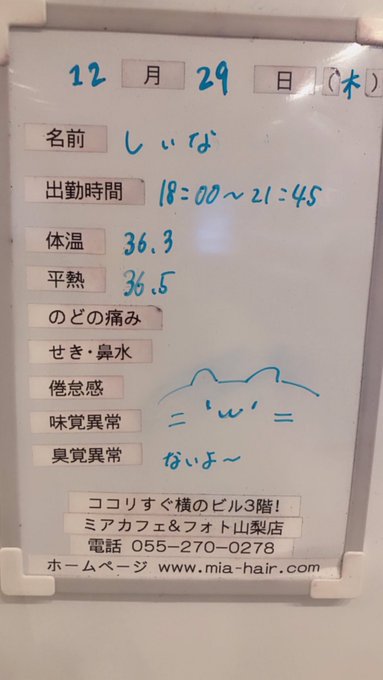 12 月 29 日 (木)
名前 しぃな
出勤時間 18:00〜21:45
体温 36.3
平熱 36.5
のどの痛み
せき・鼻水
倦怠感
味覚異常
臭覚異常 ないよ〜
ココリすぐ横のビル3階!
ミアカフェ&フォト山梨店
電話 055-270-0278
ホームページ www.mia-hair.com